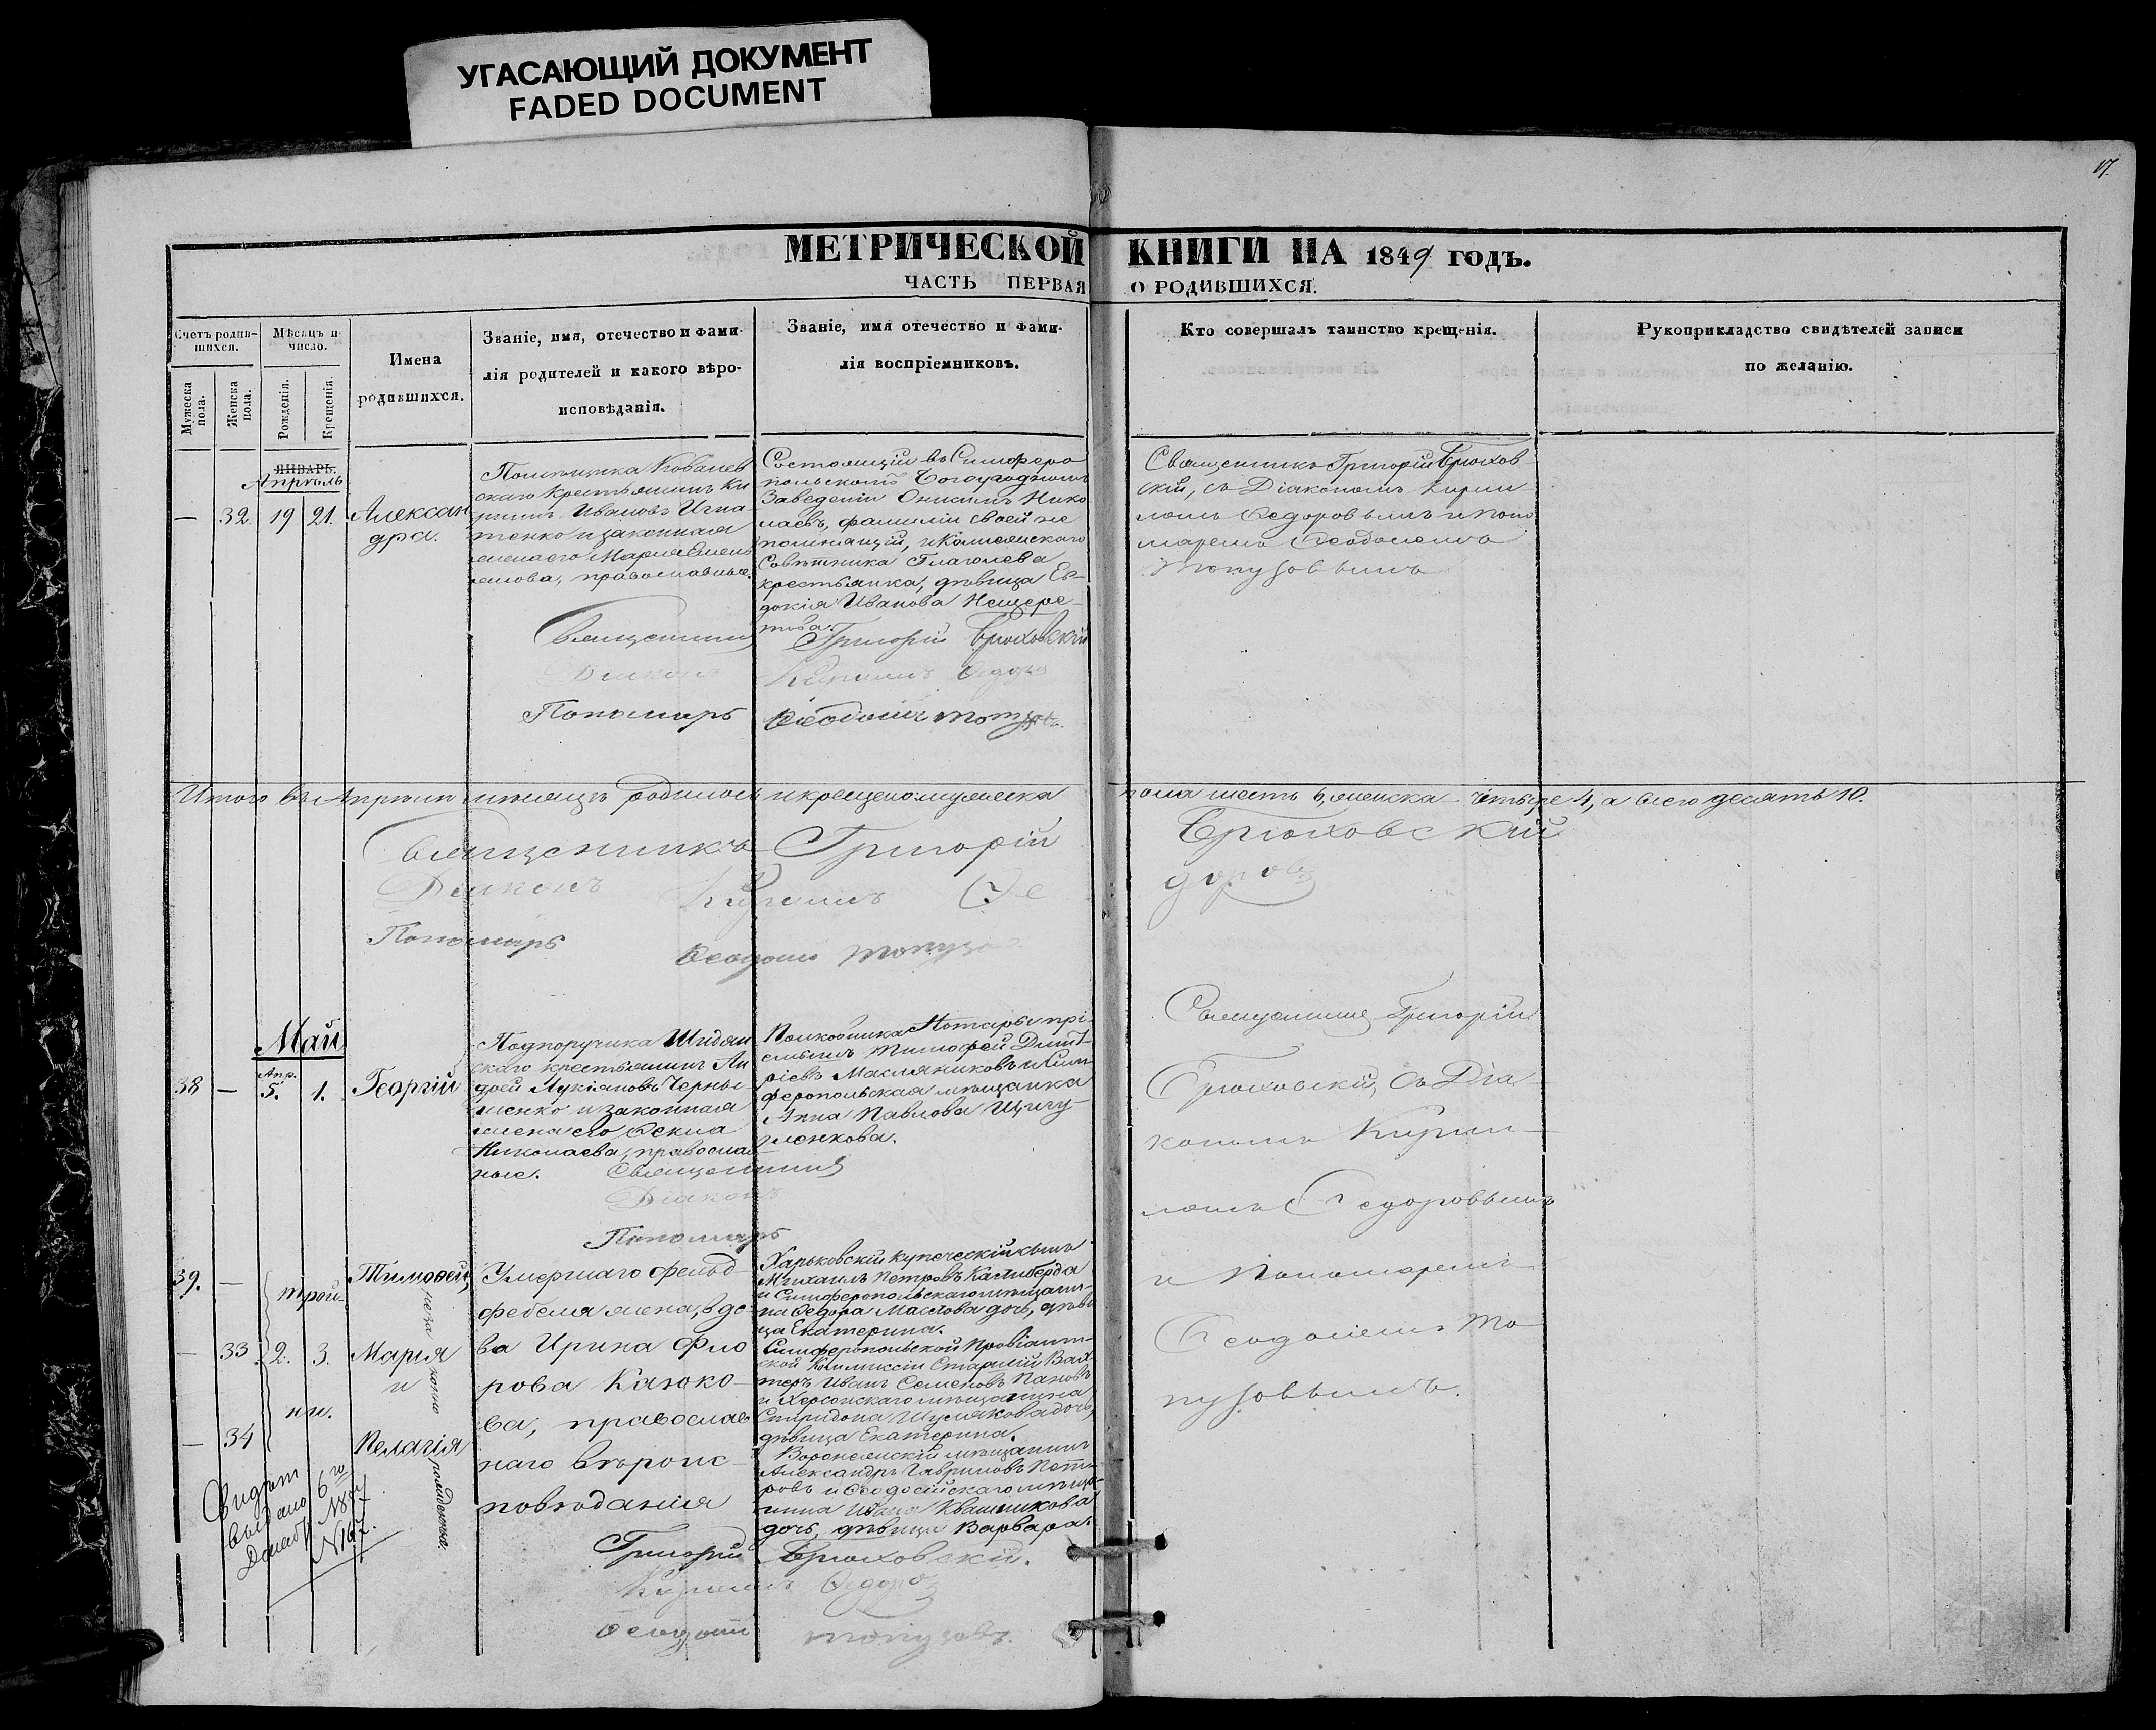 УГАСАЮЩИЙ ДОКУМЕНТ
FADED DOCUMENT
17.
МЕТРИЧЕСКОЙ КНИГИ НА 1849 ГОДЪ.
ЧАСТЬ ПЕРВАЯ О РОДИВШИХСЯ.
Счетъ родив-
шихся.
Мужеска
пола.
Женска
пола.
Мѣсяцъ и
число.
Рожденія.
Крещенія.
Имена
родившихся.
Званіе, имя, отечество и фами-
лія родителей и какого вѣро-
исповѣданія.
Званіе, имя отечество и фами-
лія воспріемниковъ.
Кто совершалъ таинство крещенія.
Рукоприкладство свидѣтелей записи
по желанію.
ЯНВАРЬ.
Апрѣль
— 32. 19 21. Алексан
дра.
Помѣщика
скаго крестьянинъ Ки
рилъ Ивановъ Игна
тенко и законная
жена его Марія Емель
янова, православные.
Состоящій въ Симферо
польскомъ Богоугодномъ
Заведеніи Онисимъ Нико
лаевъ, фамиліи своей не
помнящій, и Коллежскаго
Совѣтника Глаголева
крестьянка, дѣвица Ев-
докія Иванова Нещере-
това.
Священникъ Григорій Брюховскій
Діаконъ Кириллъ Ѳедоровъ
Пономарь Ѳеодосій Топузовъ.
Священникъ Григорій Брюхов-
скій, съ Діакономъ Кирил
ломъ Ѳедоровымъ и Поно
маремъ Ѳеодосіемъ
Топузовымъ
Итого въ Апрѣлѣ мѣсяцѣ родилось и крещено мужеска пола шесть 6, женска четыре 4, а всего десять 10.
Священникъ Григорій Брюховскій
Діаконъ Кириллъ Ѳедоровъ
Пономарь Ѳеодосій Топузовъ
Май
Апр.
38 — 5. 1. Георгій
Подпоручика
скаго крестьянинъ Ан
дрей Лукіановъ Черны
шенко и законная
жена его Ѳекла
Николаева, православ
ные.
Полковника Потапьи прі-
емышъ Тимофей Дмит-
ріевъ Масляниковъ и Сим
феропольская мѣщанка
Анна Павлова Щигу-
ленкова.
Священникъ
Діаконъ
Пономарь
Священникъ Григорій
Брюховскій, съ Діа-
кономъ Кирил-
ломъ Ѳедоровымъ
и Пономаремъ
Ѳеодосіемъ То-
пузовымъ.
39. — Тимоѳей,
трой-
— 33 2. 3. Марія
и
ни.
— 34 Пелагія
незаконно рожденные.
Умершаго фельд-
фебеля жена, вдо-
ва Ирина Фло
рова Казако-
ва, православ
наго вѣроис-
повѣданія
Харьковскій купеческій сынъ
Михаилъ Петровъ Калиберда
и Симферопольскаго мѣщани-
на Ѳедора Маслова дочь, дѣви
ца Екатерина.
Симферопольской Провіант-
ской Коммиссіи Старшій Вах-
теръ Иванъ Семеновъ Пановъ
и Херсонскаго мѣщанина
Спиридона Шулякова дочь,
дѣвица Екатерина.
Воронежскій мѣщанинъ
Александръ Гавриловъ Пет-
ровъ и Ѳеодосійскаго мѣща-
нина Ивана Квашникова
дочь, дѣвица Варвара.
Григорій Брюховскій.
Кириллъ Ѳедоровъ
Ѳеодосій Топузовъ.
Свидѣт
выдано 6 го
Декабр
N167.